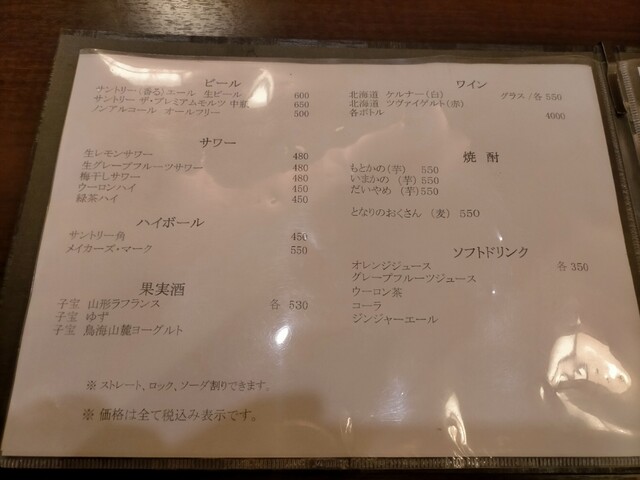 ビール
サントリー(香る)エール 生ビール 600
サントリー ザ・プレミアムモルツ 中瓶 650
ノンアルコール オールフリー 500
サワー
生レモンサワー 480
生グレープフルーツサワー 480
梅干しサワー 480
ウーロンハイ 450
緑茶ハイ 450
ハイボール
サントリー角 450
メイカーズ・マーク 550
果実酒
子宝 山形ラフランス 各 530
子宝 ゆず
子宝 鳥海山麓ヨーグルト
※ ストレート、ロック、ソーダ割りできます。
※ 価格は全て税込み表示です。
ワイン
北海道 ケルナー(白) グラス / 各 550
北海道 ツヴァイゲルト(赤)
各ボトル 4000
焼 酎
もとかの(芋) 550
いまかの (芋) 550
だいやめ (芋) 550
となりのおくさん (麦) 550
ソフトドリンク
オレンジジュース 各 350
グレープフルーツジュース
ウーロン茶
コーラ
ジンジャーエール